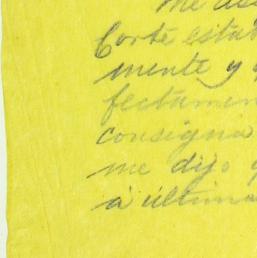 me as
Corte estab
mente y q
fectamen
consigna
me dijo q
a última